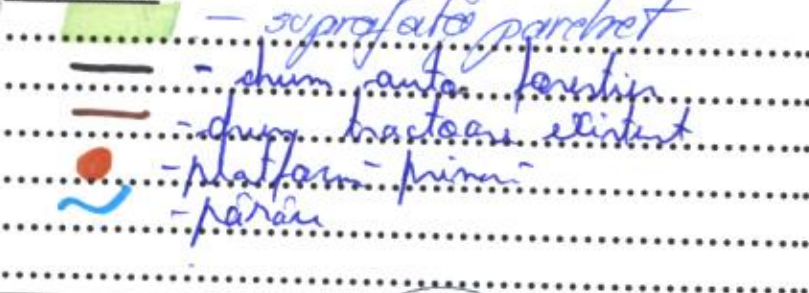 - suprafață parchet
- drum auto forestier
- drum tractoare existent
- platformă primară
- pârâu